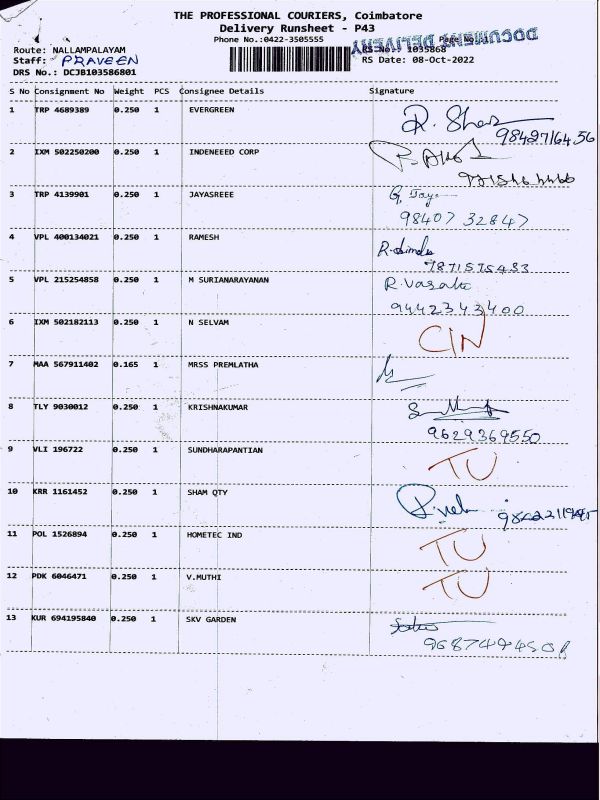 THE PROFESSIONAL COURIERS, Coimbatore
Delivery Runsheet - P43
Phone No.:0422-3505555 Page No.:1
DOCUMENT DELIVERY
Route: NALLAMPALAYAM RS No.: 1035868
Staff: PRAVEEN RS Date: 08-Oct-2022
DRS No.: DCJB103586801
S No Consignment No Weight PCS Consignee Details Signature
1 TRP 4689389 0.250 1 EVERGREEN R.
9842716456
2 IXM 502250200 0.250 1 INDENEEED CORP
3 TRP 4139901 0.250 1 JAYASREEE G. Jaya
98407 32847
4 VPL 400134021 0.250 1 RAMESH
7871575433
5 VPL 215254858 0.250 1 M SURIANARAYANAN R. Vasaki
94423 43400
6 IXM 502182113 0.250 1 N SELVAM CIN
7 MAA 567911402 0.165 1 MRSS PREMLATHA
8 TLY 9030012 0.250 1 KRISHNAKUMAR
9629369550
9 VLI 196722 0.250 1 SUNDHARAPANTIAN TU
10 KRR 1161452 0.250 1 SHAM QTY
11 POL 1526894 0.250 1 HOMETEC IND TU
12 PDK 6046471 0.250 1 V.MUTHI TU
13 KUR 694195840 0.250 1 SKV GARDEN